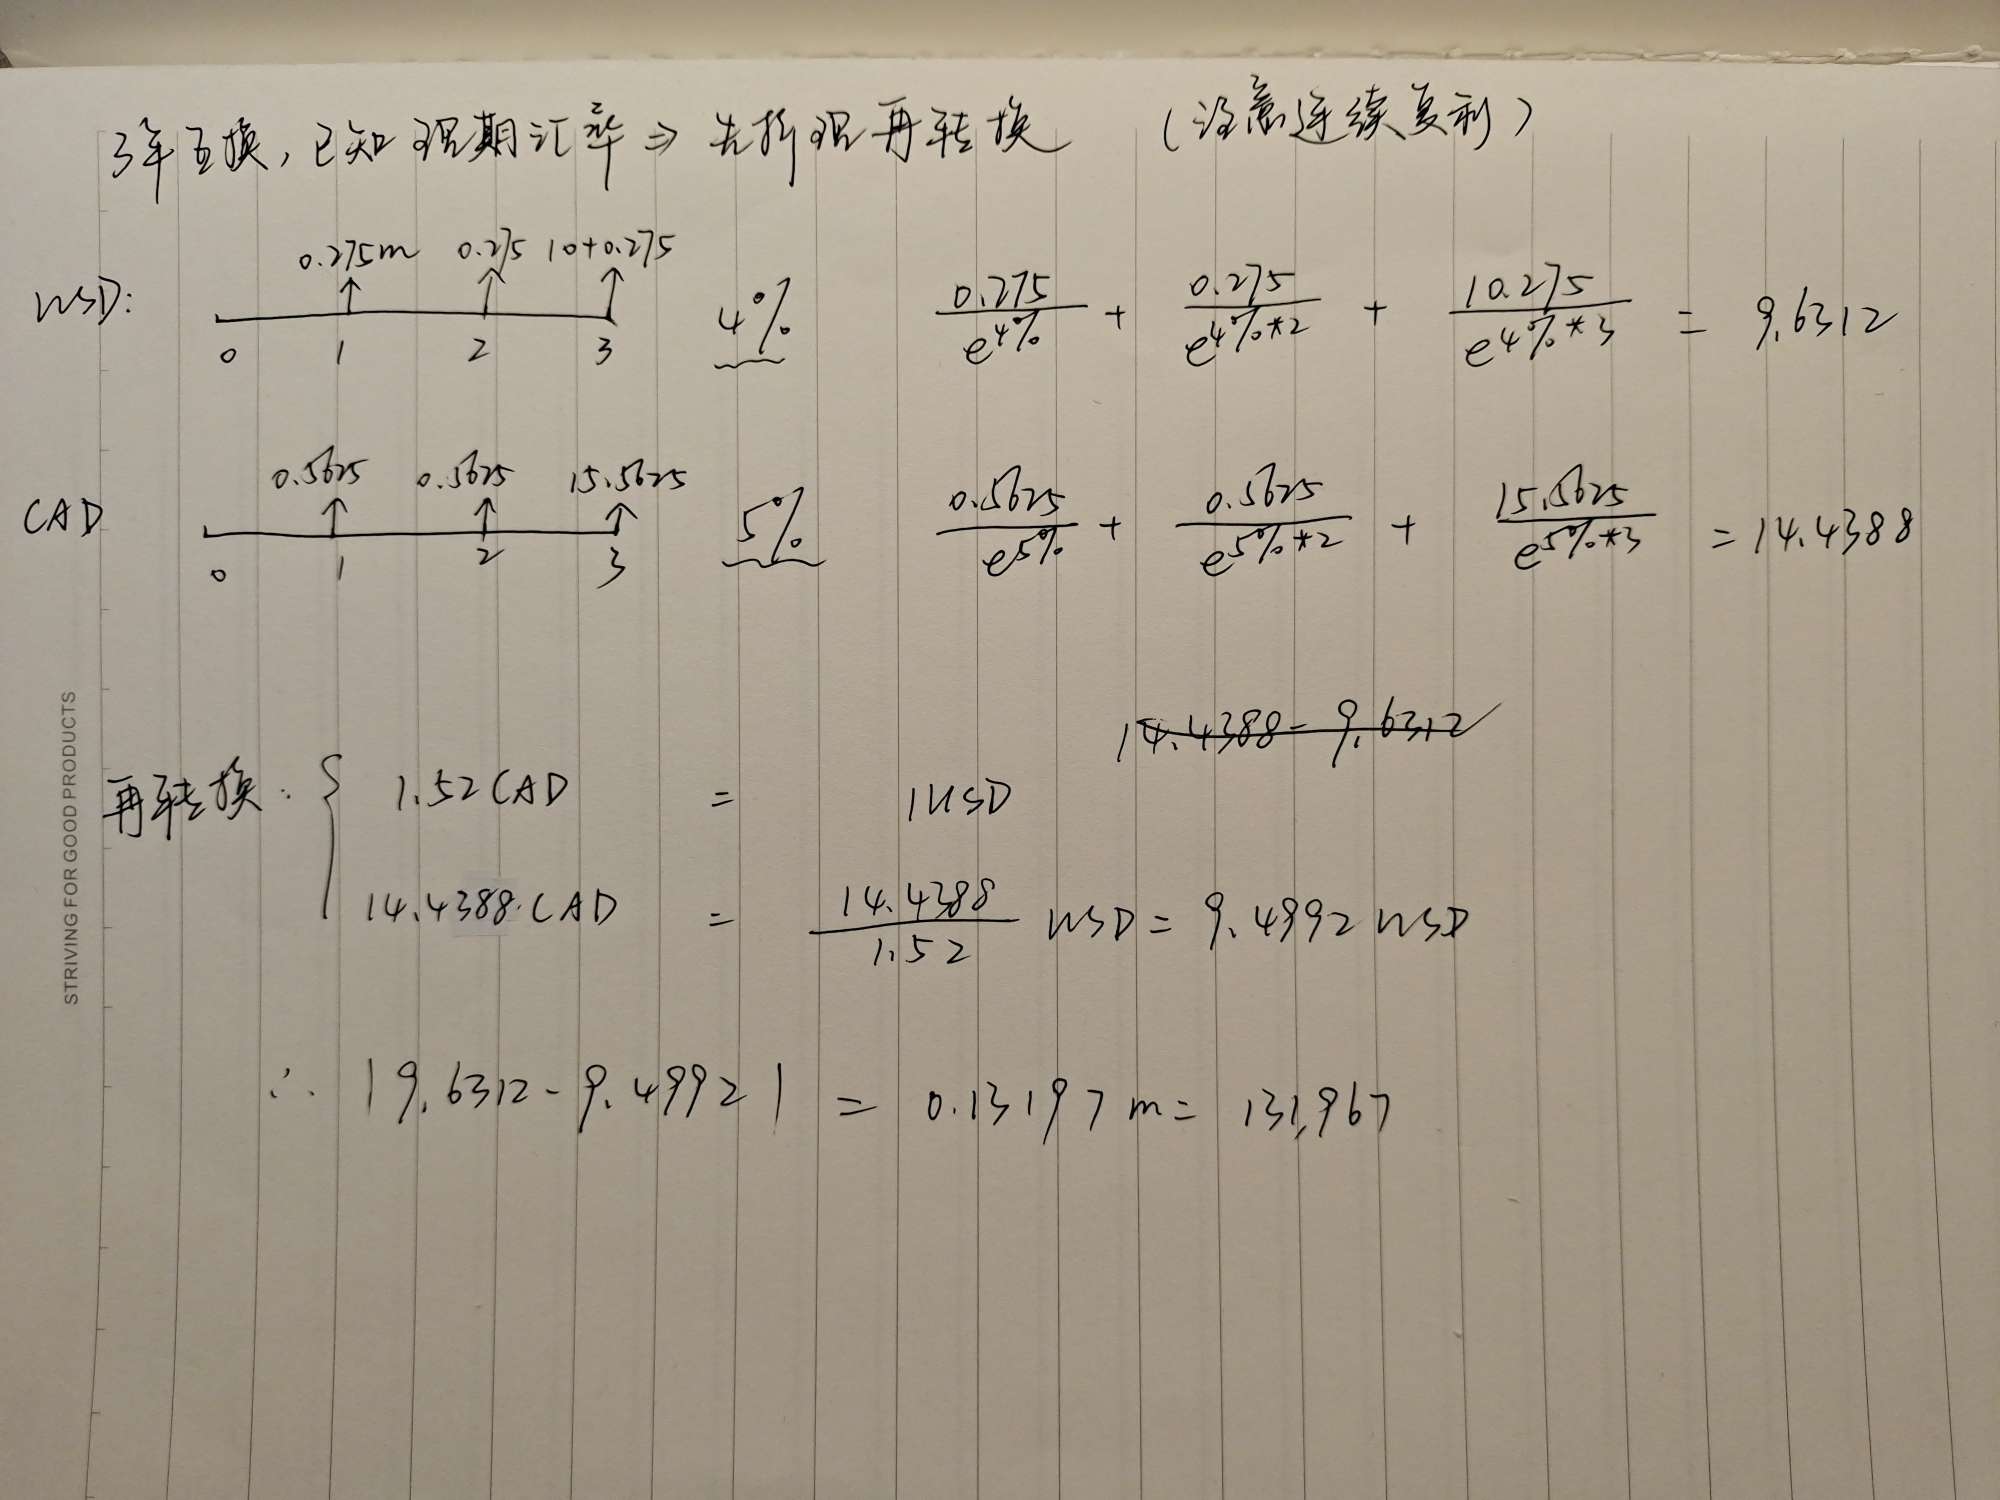 3年互换，已知现期汇率⇒先折现再转换 （注意连续复利）
0.275m 0.275 10+0.275
USD: 4% 0.275/e^4% + 0.275/e^4%*2 + 10.275/e^4%*3 = 9.6312
0 1 2 3
0.5625 0.5625 15.5625
CAD 5% 0.5625/e^5% + 0.5625/e^5%*2 + 15.5625/e^5%*3 = 14.4388
0 1 2 3
14.4388 - 9.6312
再转换: { 1.52 CAD = 1 USD
14.4388 CAD = 14.4388/1.52 USD = 9.4992 USD
∴ |9.6312 - 9.4992| = 0.13197m = 131,967
STRIVING FOR GOOD PRODUCTS